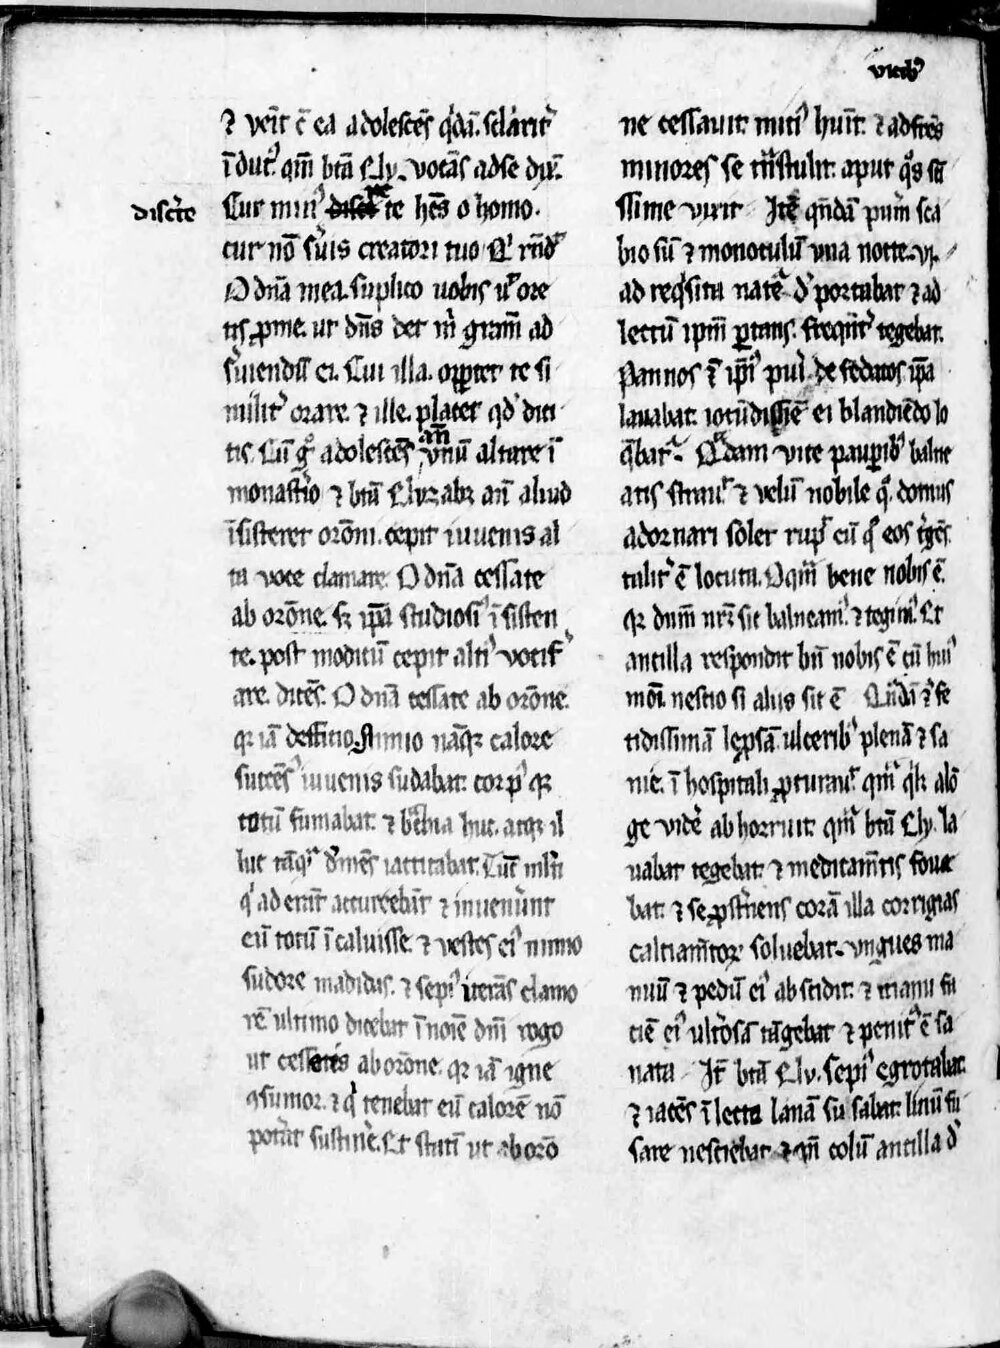 vicib᷒
⁊ veīt ē ea adolescēs q̇dā. sclarit᷒
īdut᷒ qm̄ btā Ely. vocās ad se dix̄.
discrete
Cur min᷒ te hēs o homo.
cur nō suis creatori tuo Q' rn̄d᷒
O dn̄a mea. suplico uobis ut ore
tis ꝓ me. ut dn̄s det m̄ grām ad
s̓uiendū ei. Cui illa. oꝑtet te si
milit᷒ orare. ⁊ ille. placet qd̓ dici
tis. Cū g̊ adolescēs an̄ vnū altare ī
monast̓io ⁊ btā Elyzabz an̄ aliud
īsisteret orōni. cepit iuuenis al
ta voce clamare. O dn̄a cessate
ab orōne. sꝫ ip̄a studiosi᷒ īsisten
te. post modicū cepit alti᷒ vocif̓
are. dicēs. O dn̄a cessate ab orōne.
qꝫ iā defficio. Nimio nāqꝫ calore
succēs᷒ iuuenis sudabat. corp᷒ qꝫ
totū fumabat. ⁊ bͣchia huc. atqꝫ il
luc tāqͣ d̓mēs iactitabat. Tūc ml̓ti
q̇ ad erāt accurrebāt ⁊ inuener̄unt
eū totū īcaluisse. ⁊ vestes ei᷒ nimio
sudore madidas. ⁊ sepi᷒ iterās clamo
rē ultimo dicebat ī noīe dn̄i rogo
ut cessetis ab orōne. qꝫ iā igne
ꝯsumor. ⁊ q̇ tenebāt eū calorē nō
pot̓ant sustin̓e. Et statī ut ab orō
ne cessauit miti᷒ huīt. ⁊ ad fr̄es
minores se tn̄stulit. aput q̊s scī
ssime vixit Itē qn̄dā pu̓m sca
biosū ⁊ monoculū vna nocte. vi.
ad req̇sita nat̓e d̓portabat ⁊ ad
lectū ipm̄ ꝑtans. freqn̄t᷒ tegebat.
Pannos ⁊ ip̄i᷒ pu̓i de fedatos ip̄a
lauabat. iocūdissīe ei blandiēdo lo
q̄batͬ. Qͣdam vice paupib᷒ balne
atis straūt ⁊ velū nobile q̊. domus
adornari solet rup̄ cū q̊ eos t̓gēs
tulit᷒ ē locuta. O qm̄ bene nobis ē.
qꝫ dn̄m nr̄m sic balneam᷒. ⁊ tegim᷒. Et
ancilla respondit bn̄ nobis ē cū hui᷒
moī. nescio si aliis sit ē Qn̄dā ⁊ fe
tidissimā leprosā ulcerib᷒ plenā ⁊ sa
nie. ī hospitali ꝓcurauit. qm̄ q̇lꝫ alō
ge vid̓e abhorruit. qm̄ btā Ely. la
uabat tegebat. ⁊ medicamētis foue
bat. ⁊ se ꝓst̓nens corā illa corrigias
calciam̄toꝝ soluebat. vngues ma
nuū ⁊ pedū ei᷒ abscidit. ⁊ manu fa
ciē ei᷒ ulc̓osā tāgebat ⁊ penit᷒ ē sa
nata Itē btā Ely. sepi᷒ egrotabat.
⁊ iacēs ī lecto lanā su sabat. linū fu
sare nesciebat ⁊ qn̄ colū ancilla d̓